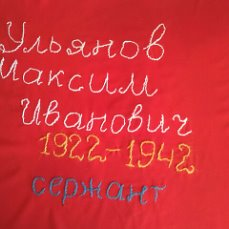 Ульянов
Максим
Иванович
1922-1942
сержант